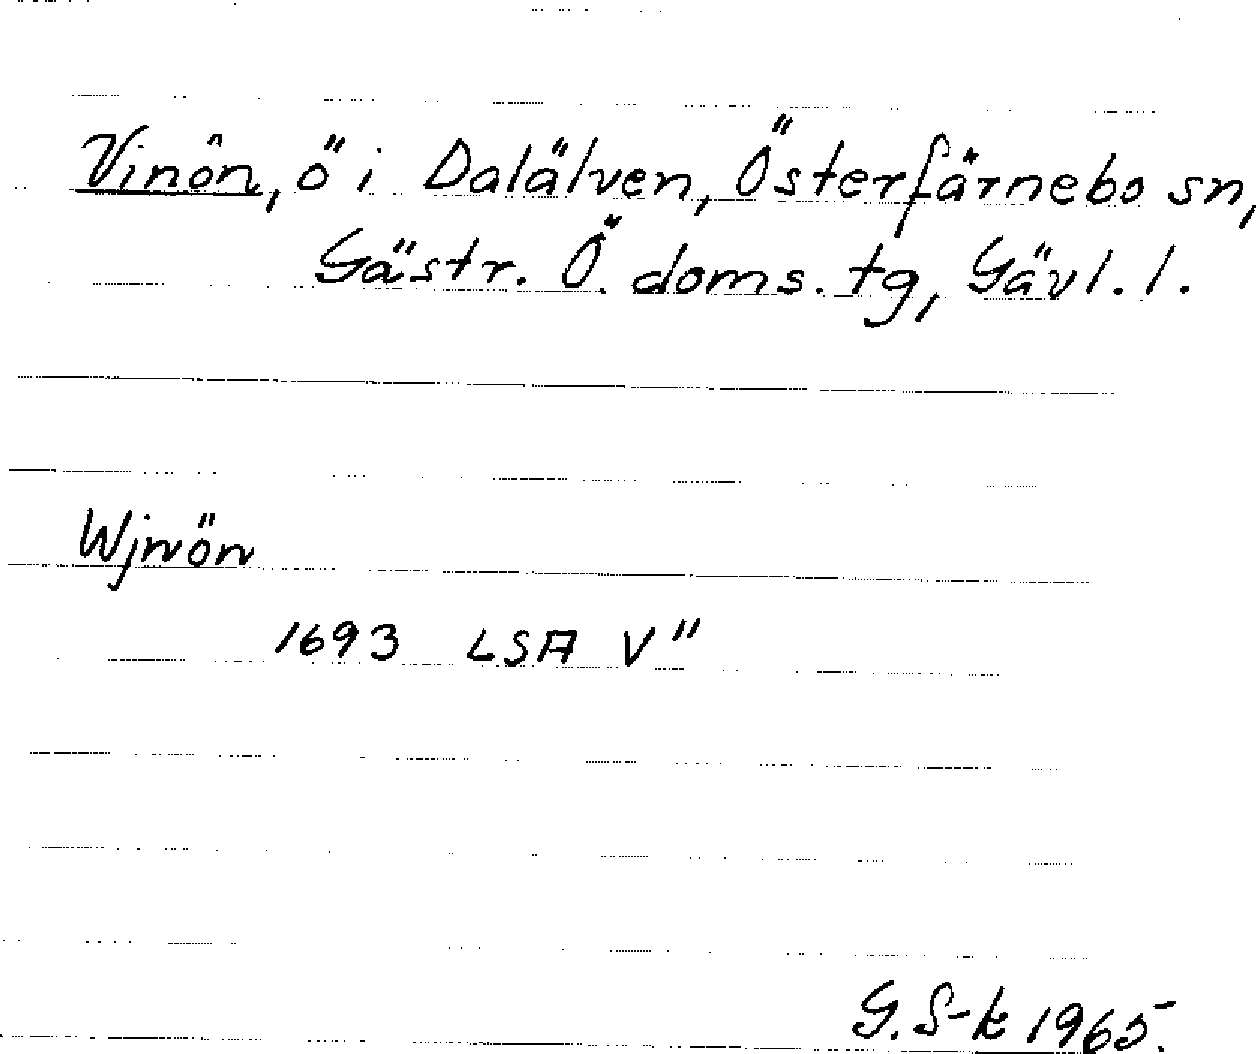 Vinön, ö i Dalälven, Österfärnebo sn,
Gästr. Ö. doms. tg, Gävl. l.
Wjnön
1693 LSA V"
G. S-k 1965.